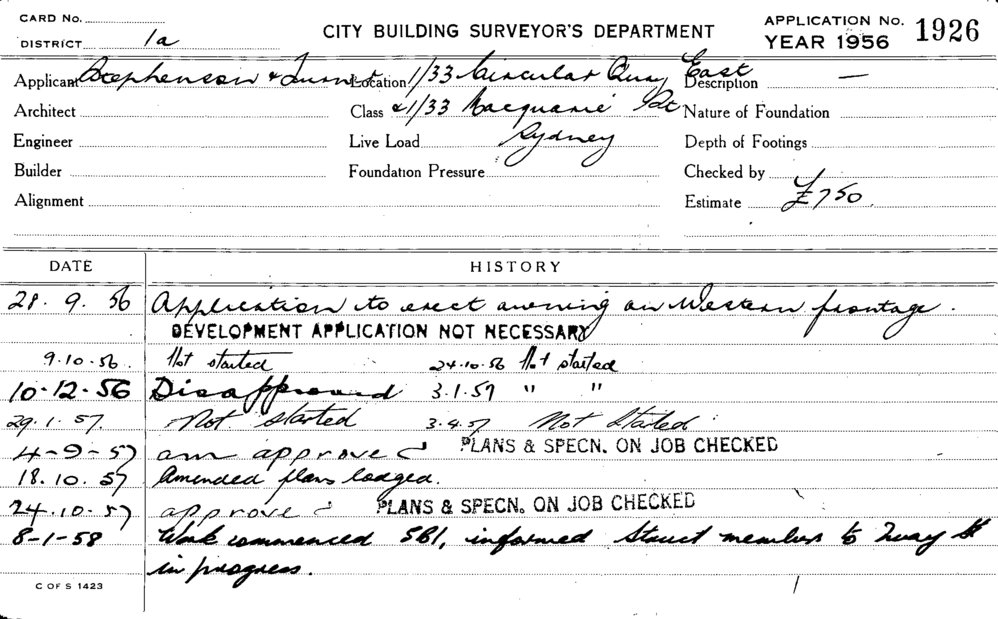 CARD No.
DISTRICT 1a
CITY BUILDING SURVEYOR'S DEPARTMENT
APPLICATION No. 1926
YEAR 1956
Applicant Stephenson & Turner Location 1/33 Circular Quay East Description —
Architect Class & 1/33 Macquarie Nature of Foundation
Engineer Live Load Sydney Depth of Footings
Builder Foundation Pressure Checked by
Alignment Estimate £750.
DATE HISTORY
28. 9. 56 Application to erect awning on Western frontage.
DEVELOPMENT APPLICATION NOT NECESSARY
9.10.56. Not started 24.10.56 Not started
10.12.56 Disapproved 3.1.57 " "
29.1.57. Not started 3.4.57 Not Started
4-9-57 am approved PLANS & SPECN. ON JOB CHECKED
18.10.57 Amended plans lodged.
24.10.57 approved PLANS & SPECN. ON JOB CHECKED
8-1-58 Work commenced SB1, informed Struct members to
in progress.
C OF S 1423